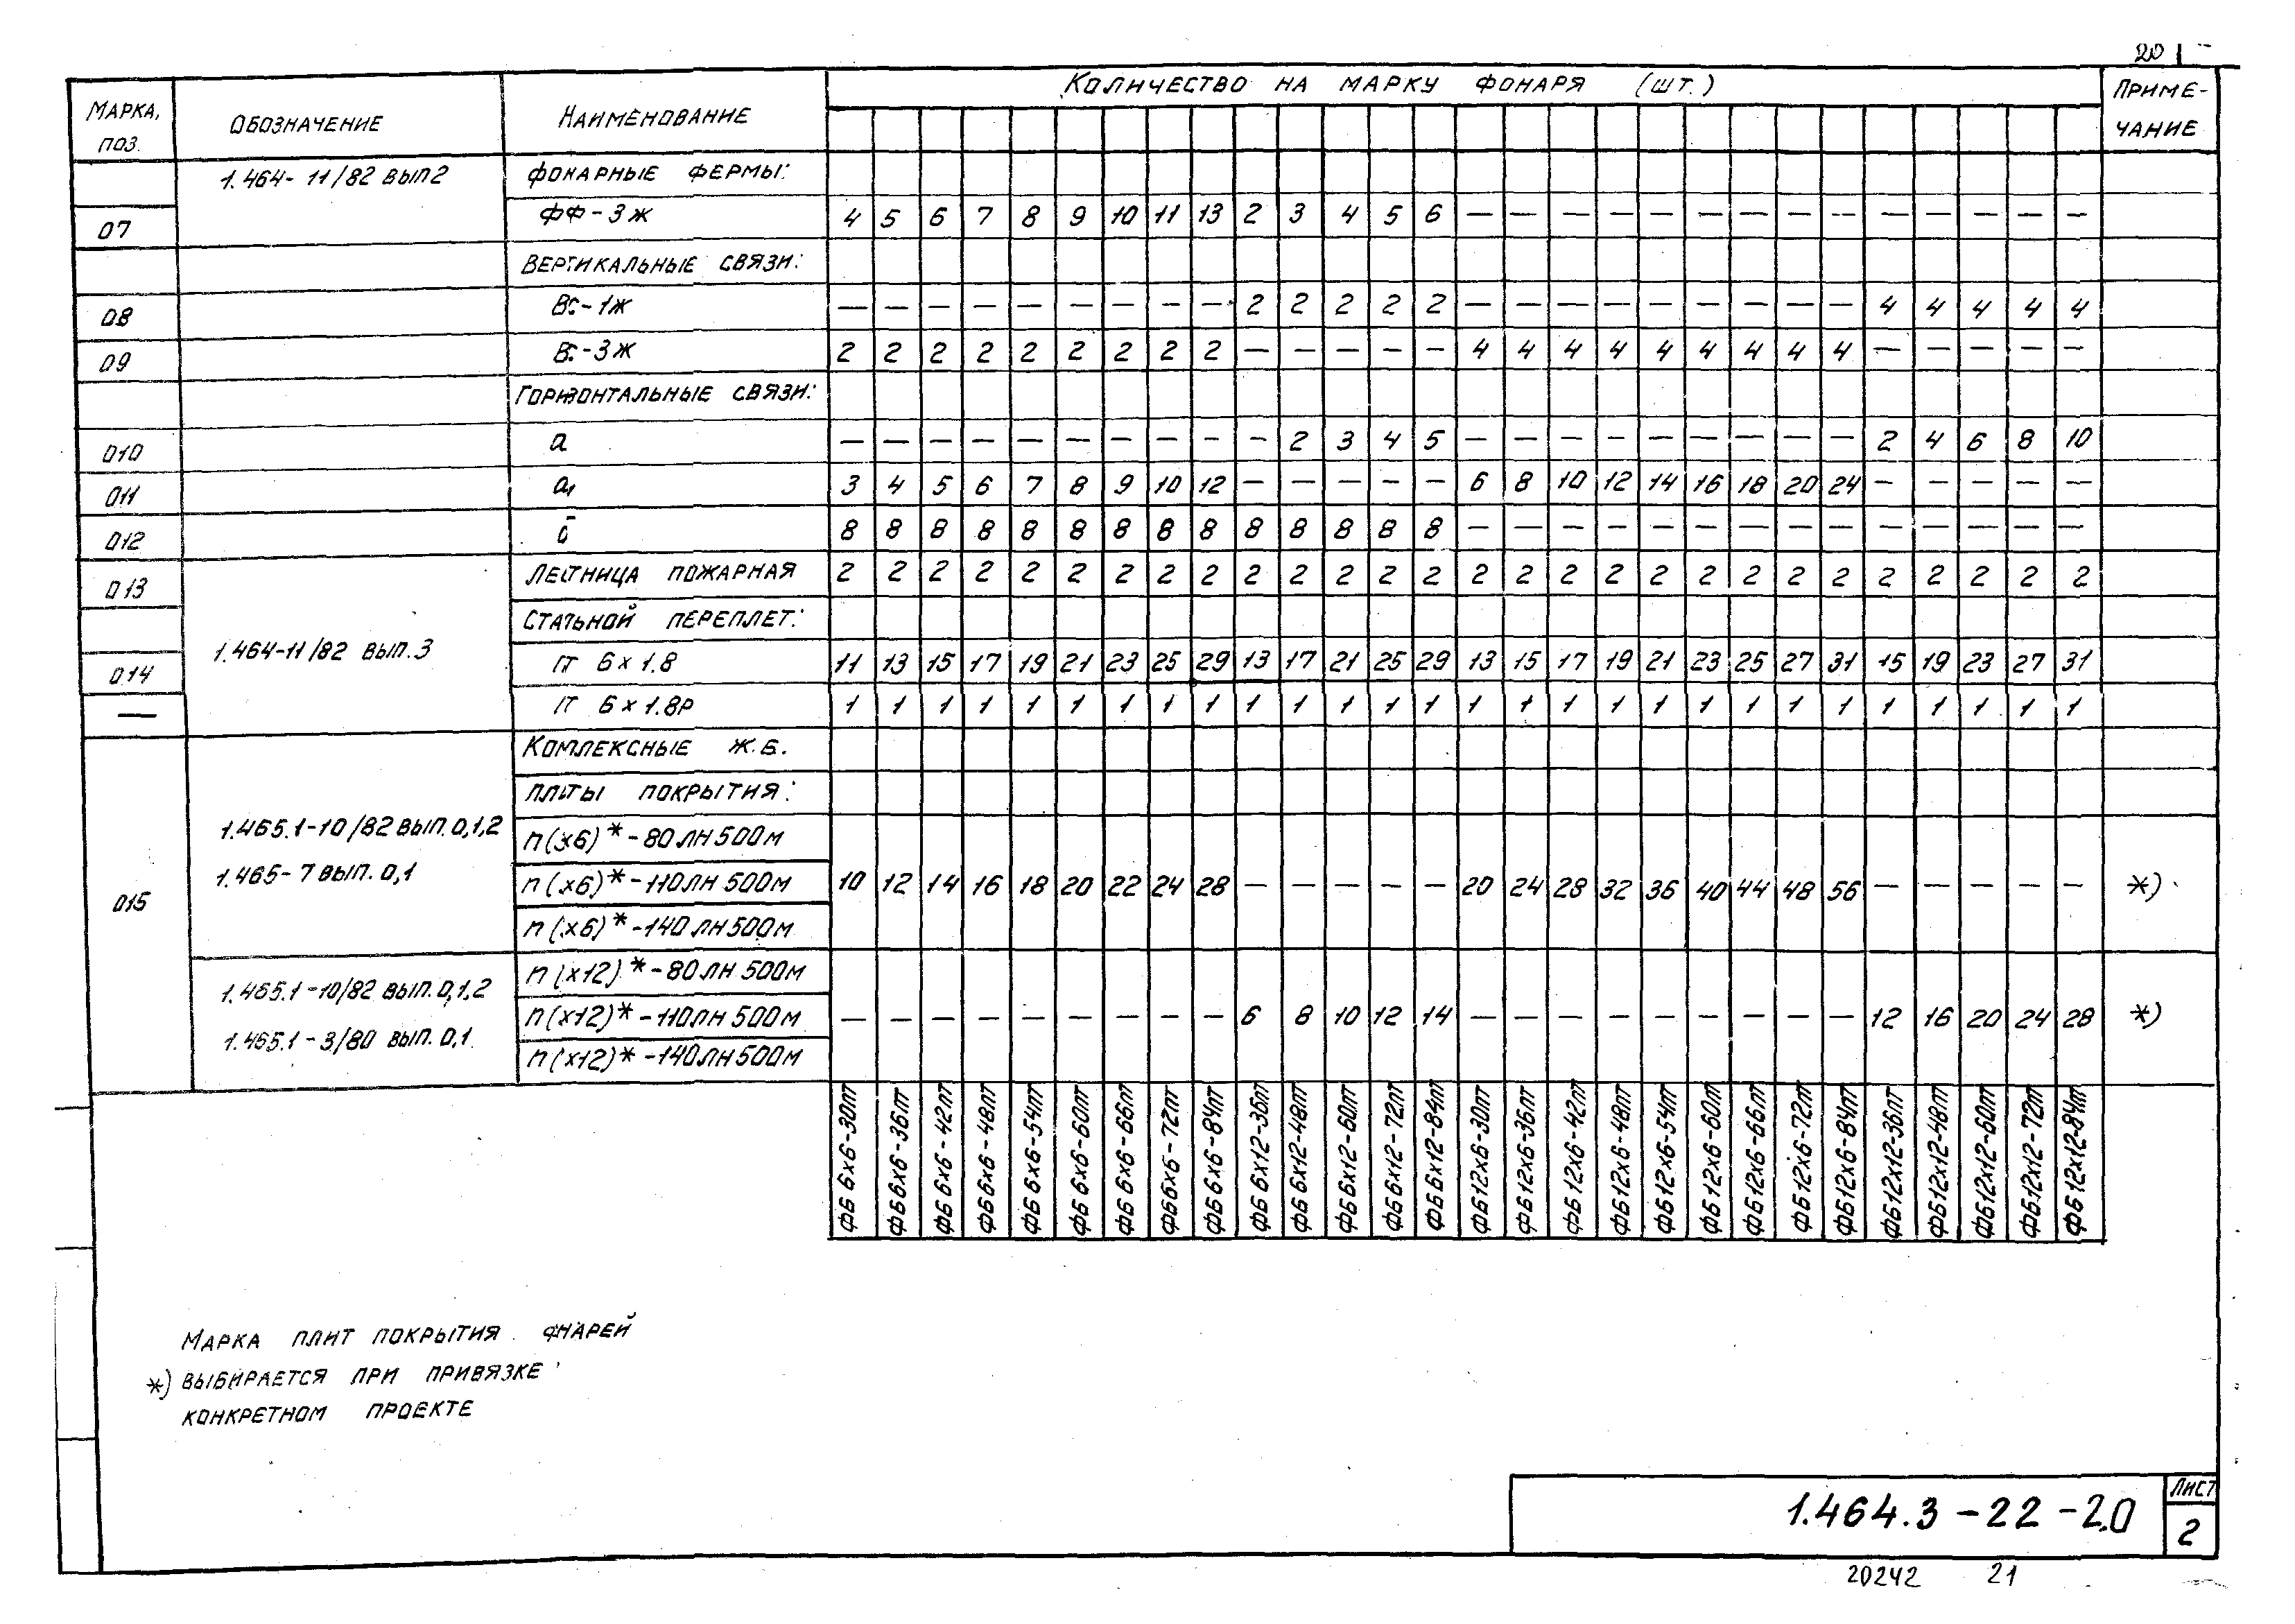 20
МАРКА, ПОЗ. ОБОЗНАЧЕНИЕ НАИМЕНОВАНИЕ КОЛИЧЕСТВО НА МАРКУ ФОНАРЯ (ШТ.) ПРИМЕ-ЧАНИЕ
1.464-11/82 ВЫП2 ФОНАРНЫЕ ФЕРМЫ:
07 ФФ-3Ж 4 5 6 7 8 9 10 11 13 2 3 4 5 6 — — — — — — — — — — — — — —
ВЕРТИКАЛЬНЫЕ СВЯЗИ:
08 ВС-1Ж — — — — — — — — — 2 2 2 2 2 — — — — — — — — — 4 4 4 4 4
09 ВС-3Ж 2 2 2 2 2 2 2 2 2 — — — — — 4 4 4 4 4 4 4 4 4 — — — — —
ГОРИЗОНТАЛЬНЫЕ СВЯЗИ:
010 а — — — — — — — — — — 2 3 4 5 — — — — — — — — — 2 4 6 8 10
011 а1 3 4 5 6 7 8 9 10 12 — — — — — 6 8 10 12 14 16 18 20 24 — — — — —
012 б 8 8 8 8 8 8 8 8 8 8 8 8 8 8 — — — — — — — — — — — — — —
013 ЛЕСТНИЦА ПОЖАРНАЯ 2 2 2 2 2 2 2 2 2 2 2 2 2 2 2 2 2 2 2 2 2 2 2 2 2 2 2 2
1.464-11/82 ВЫП.3 СТАЛЬНОЙ ПЕРЕПЛЕТ:
014 ПГ 6×1.8 11 13 15 17 19 21 23 25 29 13 17 21 25 29 13 15 17 19 21 23 25 27 31 15 19 23 27 31
— ПГ 6×1.8Р 1 1 1 1 1 1 1 1 1 1 1 1 1 1 1 1 1 1 1 1 1 1 1 1 1 1 1 1
КОМПЛЕКСНЫЕ Ж.Б.
ПЛИТЫ ПОКРЫТИЯ:
1.465.1-10/82 ВЫП.0,1,2 П(×6)*-80ЛН500М
015 1.465-7 ВЫП.0,1 П(×6)*-110ЛН500М 10 12 14 16 18 20 22 24 28 — — — — — 20 24 28 32 36 40 44 48 56 — — — — — *)
П(×6)*-140ЛН500М
1.465.1-10/82 ВЫП.0,1,2 П(×12)*-80ЛН500М
1.465.1-3/80 ВЫП.0,1 П(×12)*-110ЛН500М — — — — — — — — — 6 8 10 12 14 — — — — — — — — — 12 16 20 24 28 *)
П(×12)*-140ЛН500М
ФБ6×6-30ПТ
ФБ6×6-36ПТ
ФБ6×6-42ПТ
ФБ6×6-48ПТ
ФБ6×6-54ПТ
ФБ6×6-60ПТ
ФБ6×6-66ПТ
ФБ6×6-72ПТ
ФБ6×6-84ПТ
ФБ6×12-36ПТ
ФБ6×12-48ПТ
ФБ6×12-60ПТ
ФБ6×12-72ПТ
ФБ6×12-84ПТ
ФБ12×6-30ПТ
ФБ12×6-36ПТ
ФБ12×6-42ПТ
ФБ12×6-48ПТ
ФБ12×6-54ПТ
ФБ12×6-60ПТ
ФБ12×6-66ПТ
ФБ12×6-72ПТ
ФБ12×6-84ПТ
ФБ12×12-36ПТ
ФБ12×12-48ПТ
ФБ12×12-60ПТ
ФБ12×12-72ПТ
ФБ12×12-84ПТ
МАРКА ПЛИТ ПОКРЫТИЯ ФНАРЕЙ
*) ВЫБИРАЕТСЯ ПРИ ПРИВЯЗКЕ
КОНКРЕТНОМ ПРОЕКТЕ
1.464.3-22-2.0
ЛИСТ
2
20242 21